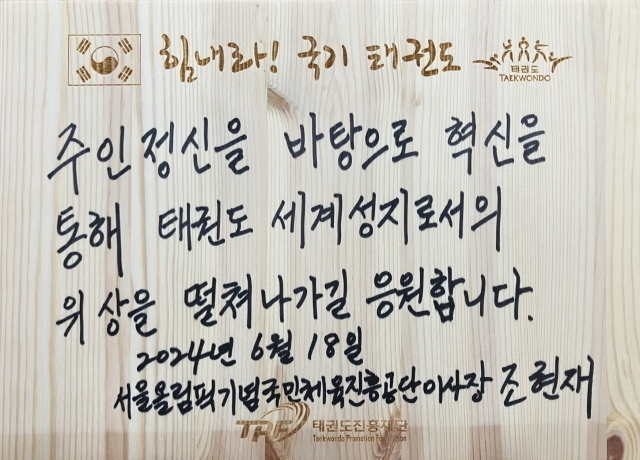 힘내라! 국기 태권도
태권도
TAEKWONDO
주인정신을 바탕으로 혁신을
통해 태권도 세계성지로서의
위상을 떨쳐나가길 응원합니다.
2024년 6월 18일
서울올림픽기념국민체육진흥공단이사장 조현재
TPF 태권도진흥재단
Taekwondo Promotion Foundation